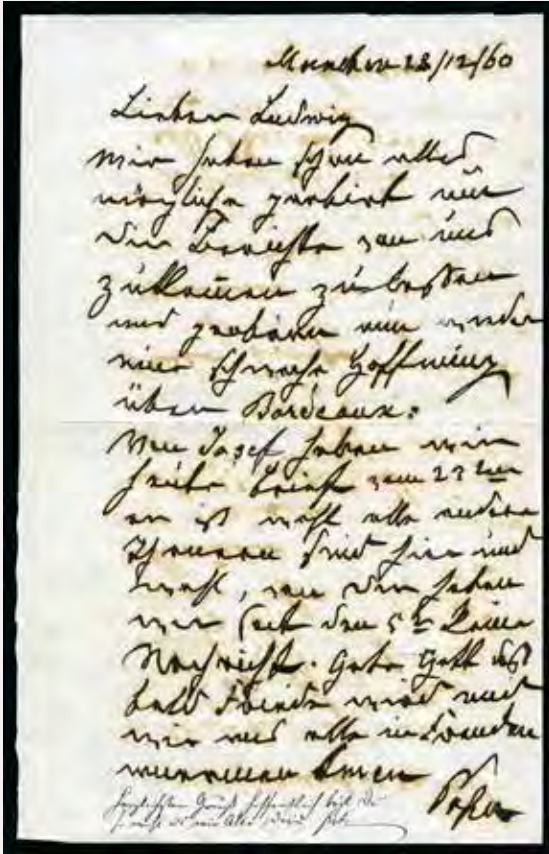 München 28/12/60
Lieber Ludwig
Wir haben schon alles
mögliche probirt um
Dir Berichte von uns
zukommen zu lassen
und probiren nun wieder
eine schwache Hoffnung
über Bordeaux:
Von Josef haben wir
heute Brief vom 23ten
er ist wohl alle andern
Theuren sind hier und
wohl, von Dir haben
wir seit dem 5ten keine
Nachricht. Gebe Gott daß
bald Friede wird und
wir uns alle in Freuden
umarmen können
Papa
Herzlichsten Gruß hoffentlich